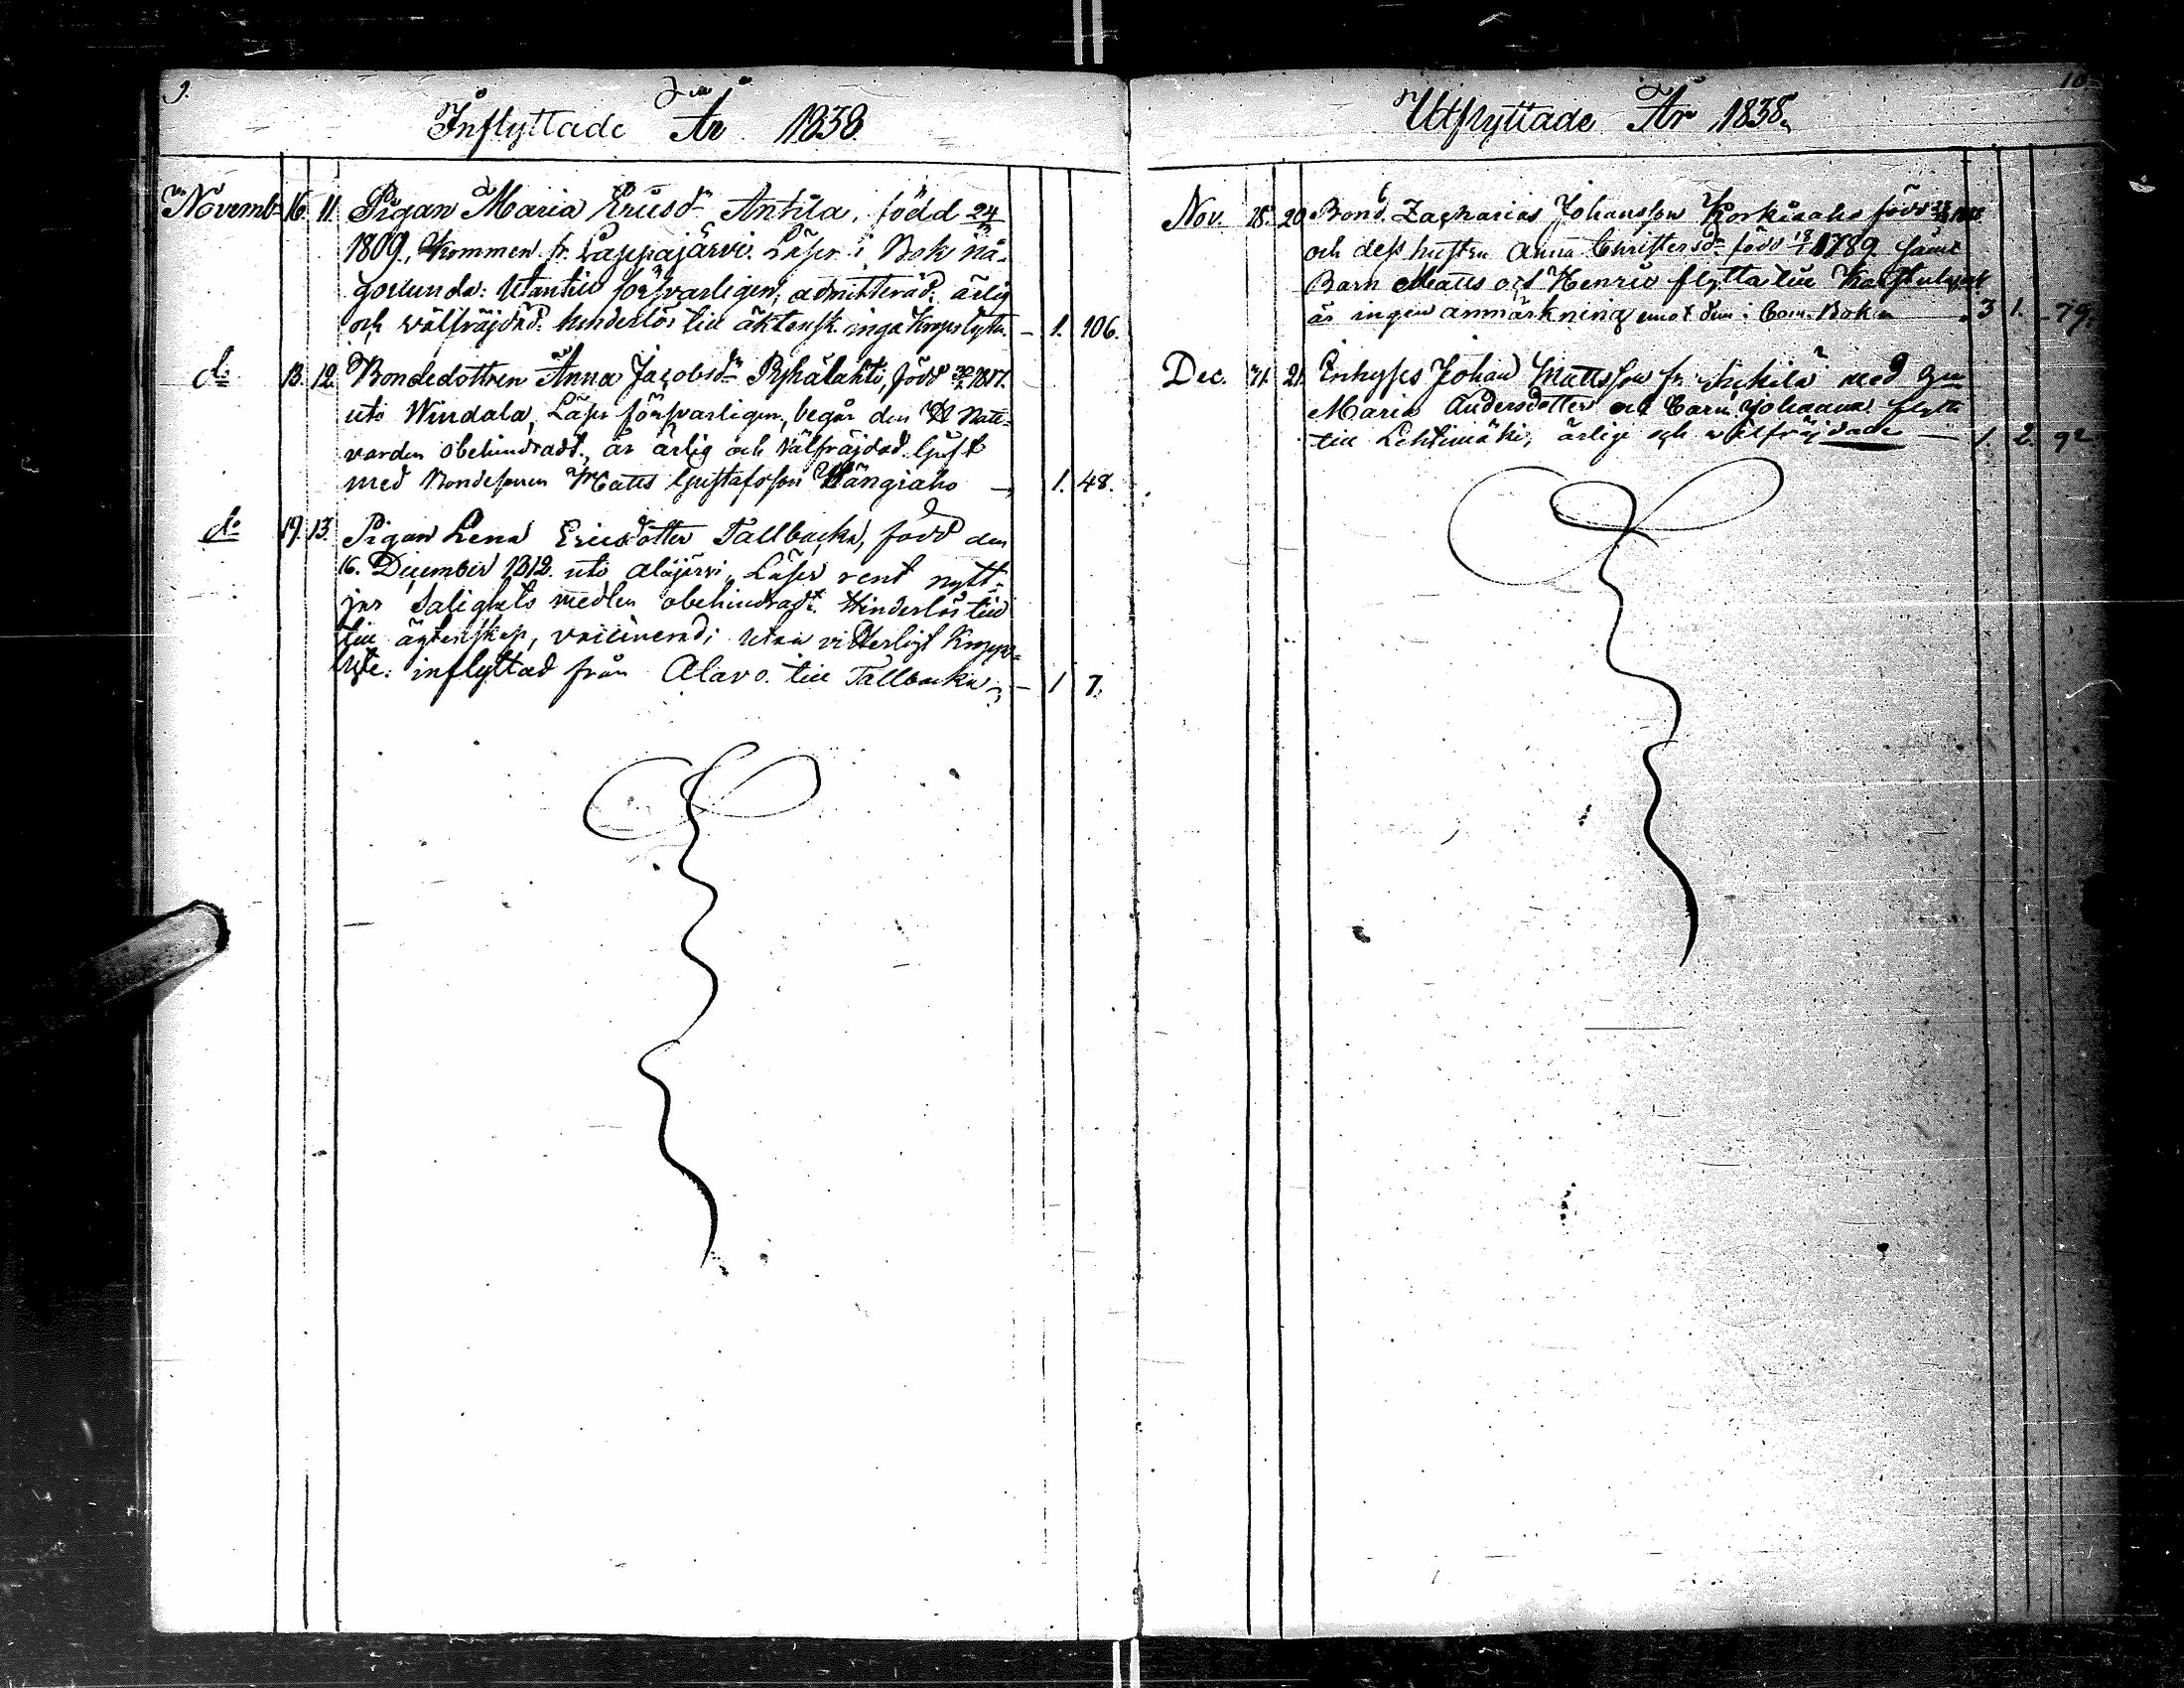 9.
Inflyttade År 1838.
Novemb. 16. 11. Pigan Maria Ericsdr Antila, född 24
1809, Kommen fr. Lappajärvi. Läser i Bok nå-
gorlunda: Utantill försvarligen, admitterad. ärlig
och wälfräjdad. hinderlös till äktensk. inga Kopps lyten. — 1. 106.
do 13. 12. Bondedottren Anna Jacobsdr Pyhälahti, född 1817.
uti Windala, Läser försvarligen, begår den H Natt-
varden obehindradt, är ärlig och välfräjdad. lyst
med Bondesonen Matts Gustafsson Hängiaho — 1. 48.
do 19. 13. Pigan Lena Ericsdotter Tallbacka, född den
16. December 1812. uti Alajärvi, Läser rent nytt-
jer Salighets medlen obehindradt. Hinderlös till
till äktenskap, vaccinerad; utan vitterligt Kropps-
lyte. inflyttad från Alavo. till Tallbacka — 1 7.
10.
Utflyttade År 1838.
Nov. 28. 20. Bond. Zacharias Johansson Korkiaaho född
och dess hustru Anna Christersdr född 18 1789 samt
Barn Matts och Henric flytta till
är ingen anmärkning emot dem i Com. Boken — 3 1. 79.
Dec. 31. 21. Inhyses Johan Mattsson fr. med
Maria Andersdotter och barn Johanna flytta
till Lehtimäki, ärlige och wälfräjdade — 1. 2. 92